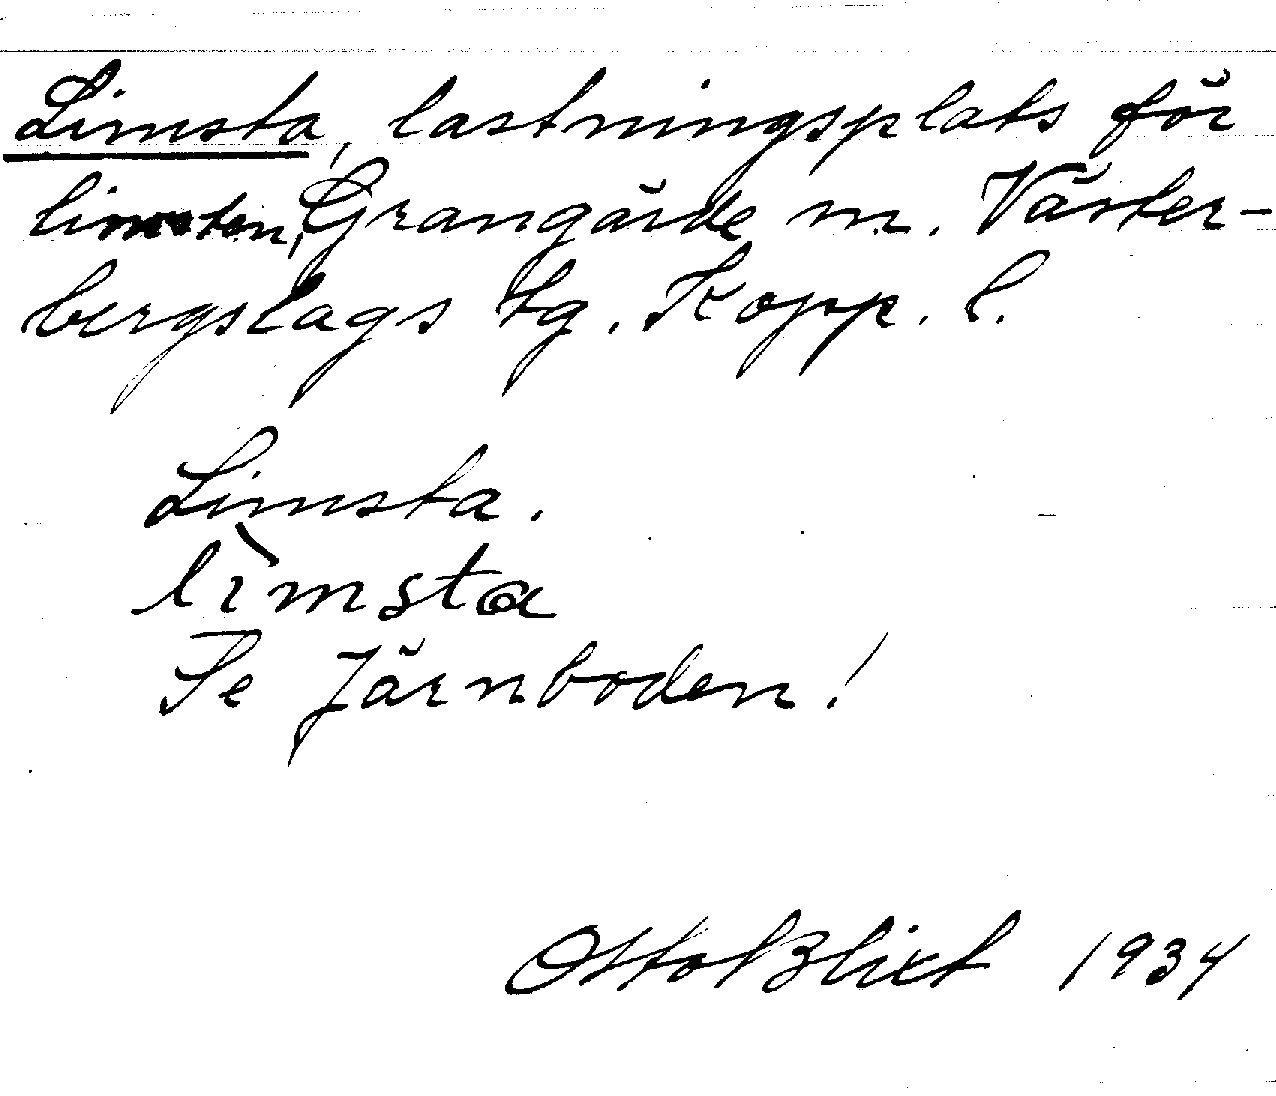 Limsta, lastningsplats för
limsten, Grangärde m. Väster-
bergslags tg. Kopp. l.
Limsta.
lìmsta
Se Järnboden!
Otto Blixt 1934